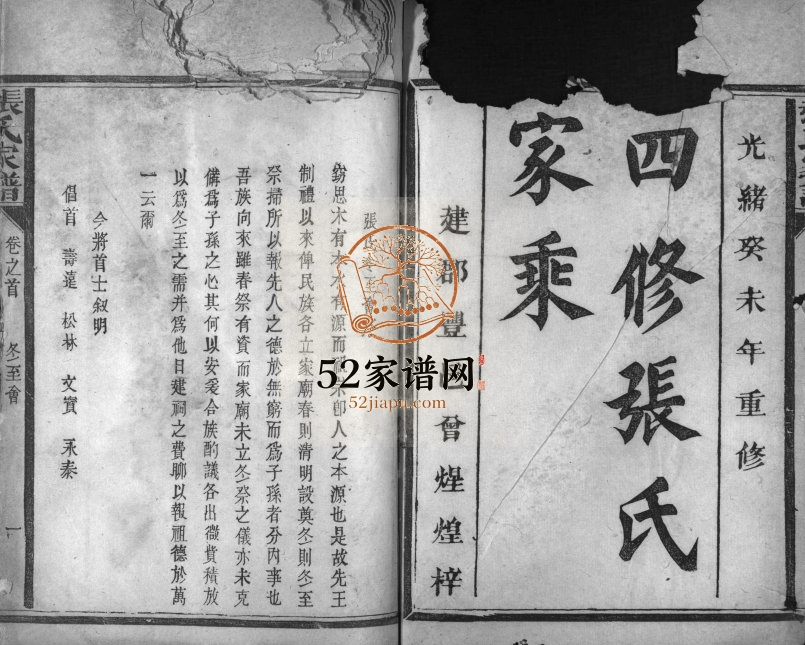 光緒癸未年重修
四修張氏
家乘
建郡豐 曾煋煌梓
張氏冬至
竊思木有本水有源而祖宗卽人之本源也是故先王
制禮以來俾民族各立家廟春則清明設奠冬則冬至
祭掃所以報先人之德於無窮而爲子孫者分內事也
吾族向來雖春祭有資而家廟未立冬祭之儀亦未克
備爲子孫之心其何以安爰合族酌議各出微費積放
以爲冬至之需并爲他日建祠之費聊以報祖德於萬
一云爾
今將首士叙明
倡首 壽蓮 松林 文實 永泰
張氏家譜
卷之首
冬至會
一
52家谱网
52jiapu.com